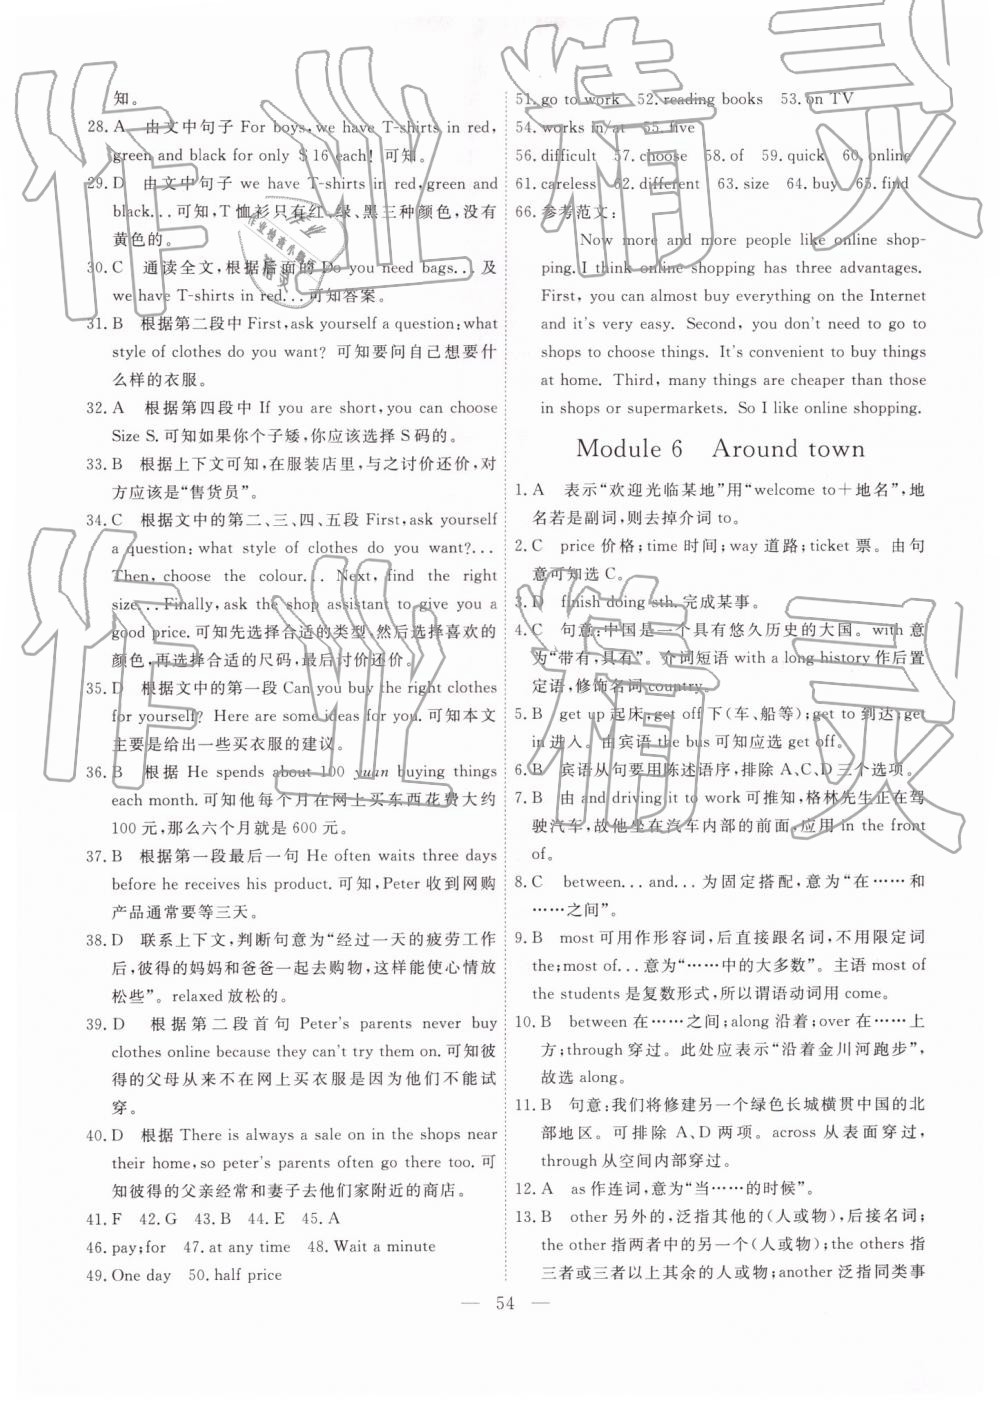 知。
28. A　由文中句子 For boys, we have T-shirts in red,
green and black for only $16 each! 可知。
29. D　由文中句子 we have T-shirts in red, green and
black... 可知，T恤衫只有红、绿、黑三种颜色，没有
黄色的。
30. C　通读全文，根据后面的 Do you need bags... 及
we have T-shirts in red... 可知答案。
31. B　根据第二段中 First, ask yourself a question: what
style of clothes do you want? 可知要问自己想要什
么样的衣服。
32. A　根据第四段中 If you are short, you can choose
Size S. 可知如果你个子矮，你应该选择 S 码的。
33. B　根据上下文可知，在服装店里，与之讨价还价，对
方应该是“售货员”。
34. C　根据文中的第二、三、四、五段 First, ask yourself
a question: what style of clothes do you want?...
Then, choose the colour... Next, find the right
size... Finally, ask the shop assistant to give you a
good price. 可知先选择合适的类型，然后选择喜欢的
颜色，再选择合适的尺码，最后讨价还价。
35. D　根据文中的第一段 Can you buy the right clothes
for yourself? Here are some ideas for you. 可知本文
主要是给出一些买衣服的建议。
36. B　根据 He spends about 100 yuan buying things
each month. 可知他每个月在网上买东西花费大约
100 元，那么六个月就是 600 元。
37. B　根据第一段最后一句 He often waits three days
before he receives his product. 可知，Peter 收到网购
产品通常要等三天。
38. D　联系上下文，判断句意为“经过一天的疲劳工作
后，彼得的妈妈和爸爸一起去购物，这样能使心情放
松些”。relaxed 放松的。
39. D　根据第二段首句 Peter's parents never buy
clothes online because they can't try them on. 可知彼
得的父母从来不在网上买衣服是因为他们不能试
穿。
40. D　根据 There is always a sale on in the shops near
their home, so peter's parents often go there too. 可
知彼得的父亲经常和妻子去他们家附近的商店。
41. F　42. G　43. B　44. E　45. A
46. pay; for　47. at any time　48. Wait a minute
49. One day　50. half price
51. go to work　52. reading books　53. on TV
54. works in/at　55. five
56. difficult　57. choose　58. of　59. quick　60. online
61. careless　62. different　63. size　64. buy　65. find
66. 参考范文：
Now more and more people like online shop-
ping. I think online shopping has three advantages.
First, you can almost buy everything on the Internet
and it's very easy. Second, you don't need to go to
shops to choose things. It's convenient to buy things
at home. Third, many things are cheaper than those
in shops or supermarkets. So I like online shopping.
Module 6　Around town
1. A　表示“欢迎光临某地”用“welcome to＋地名”，地
名若是副词，则去掉介词 to。
2. C　price 价格；time 时间；way 道路；ticket 票。由句
意可知选 C。
3. D　finish doing sth. 完成某事。
4. C　句意：中国是一个具有悠久历史的大国。with 意
为“带有，具有”。介词短语 with a long history 作后置
定语，修饰名词 country。
5. B　get up 起床；get off 下（车、船等）；get to 到达；get
in 进入。由宾语 the bus 可知应选 get off。
6. B　宾语从句要用陈述语序，排除 A、C、D 三个选项。
7. B　由 and driving it to work 可推知，格林先生正在驾
驶汽车，故他坐在汽车内部的前面，应用 in the front
of。
8. C　between... and... 为固定搭配，意为“在……和
……之间”。
9. B　most 可用作形容词，后直接跟名词，不用限定词
the; most of... 意为“……中的大多数”。主语 most of
the students 是复数形式，所以谓语动词用 come。
10. B　between 在……之间；along 沿着；over 在……上
方；through 穿过。此处应表示“沿着金川河跑步”，
故选 along。
11. B　句意：我们将修建另一个绿色长城横贯中国的北
部地区。可排除 A、D 两项。across 从表面穿过，
through 从空间内部穿过。
12. A　as 作连词，意为“当……的时候”。
13. B　other 另外的，泛指其他的（人或物），后接名词；
the other 指两者中的另一个（人或物）；the others 指
三者或三者以上其余的人或物；another 泛指同类事
— 54 —
作业精灵
作业精灵